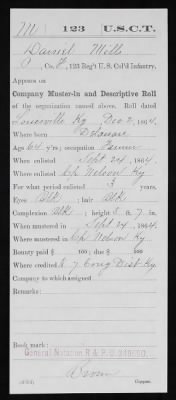 M | 123 | U.S.C.T.
Daniel Mills
, Co. F, 123 Reg't U. S. Col'd Infantry.
Appears on
Company Muster-in and Descriptive Roll
of the organization named above. Roll dated
Louisville Ky Dec 2, 1864.
Where born Delaware
Age 64 y'rs; occupation Farmer
When enlisted Sept 24, 1864.
Where enlisted Cp Nelson Ky
For what period enlisted 3 years.
Eyes Blk; hair Blk
Complexion Blk; height 5 ft. 7 in.
When mustered in Sept 24, 1864.
Where mustered in Cp Nelson Ky
Bounty paid $ 100; due $ 100
Where credited 7 Cong Dist Ky
Company to which assigned
Remarks:
Book mark:
General Notation R & P
Copyist.